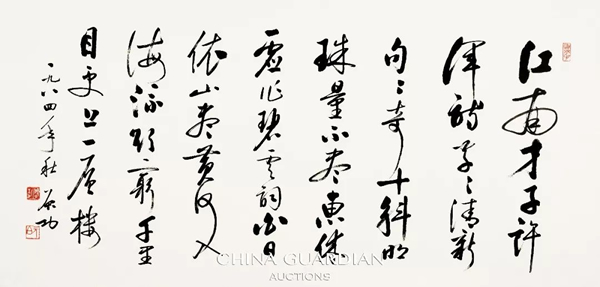 江南才子許
渾詩字〻清新
句〻奇十斛明
珠量不盡惠休
虛作碧雲詞白日
依山盡黃河入
海流欲窮千里
目更上一層樓
一九八四年秋 啟功
CHINA GUARDIAN
AUCTIONS